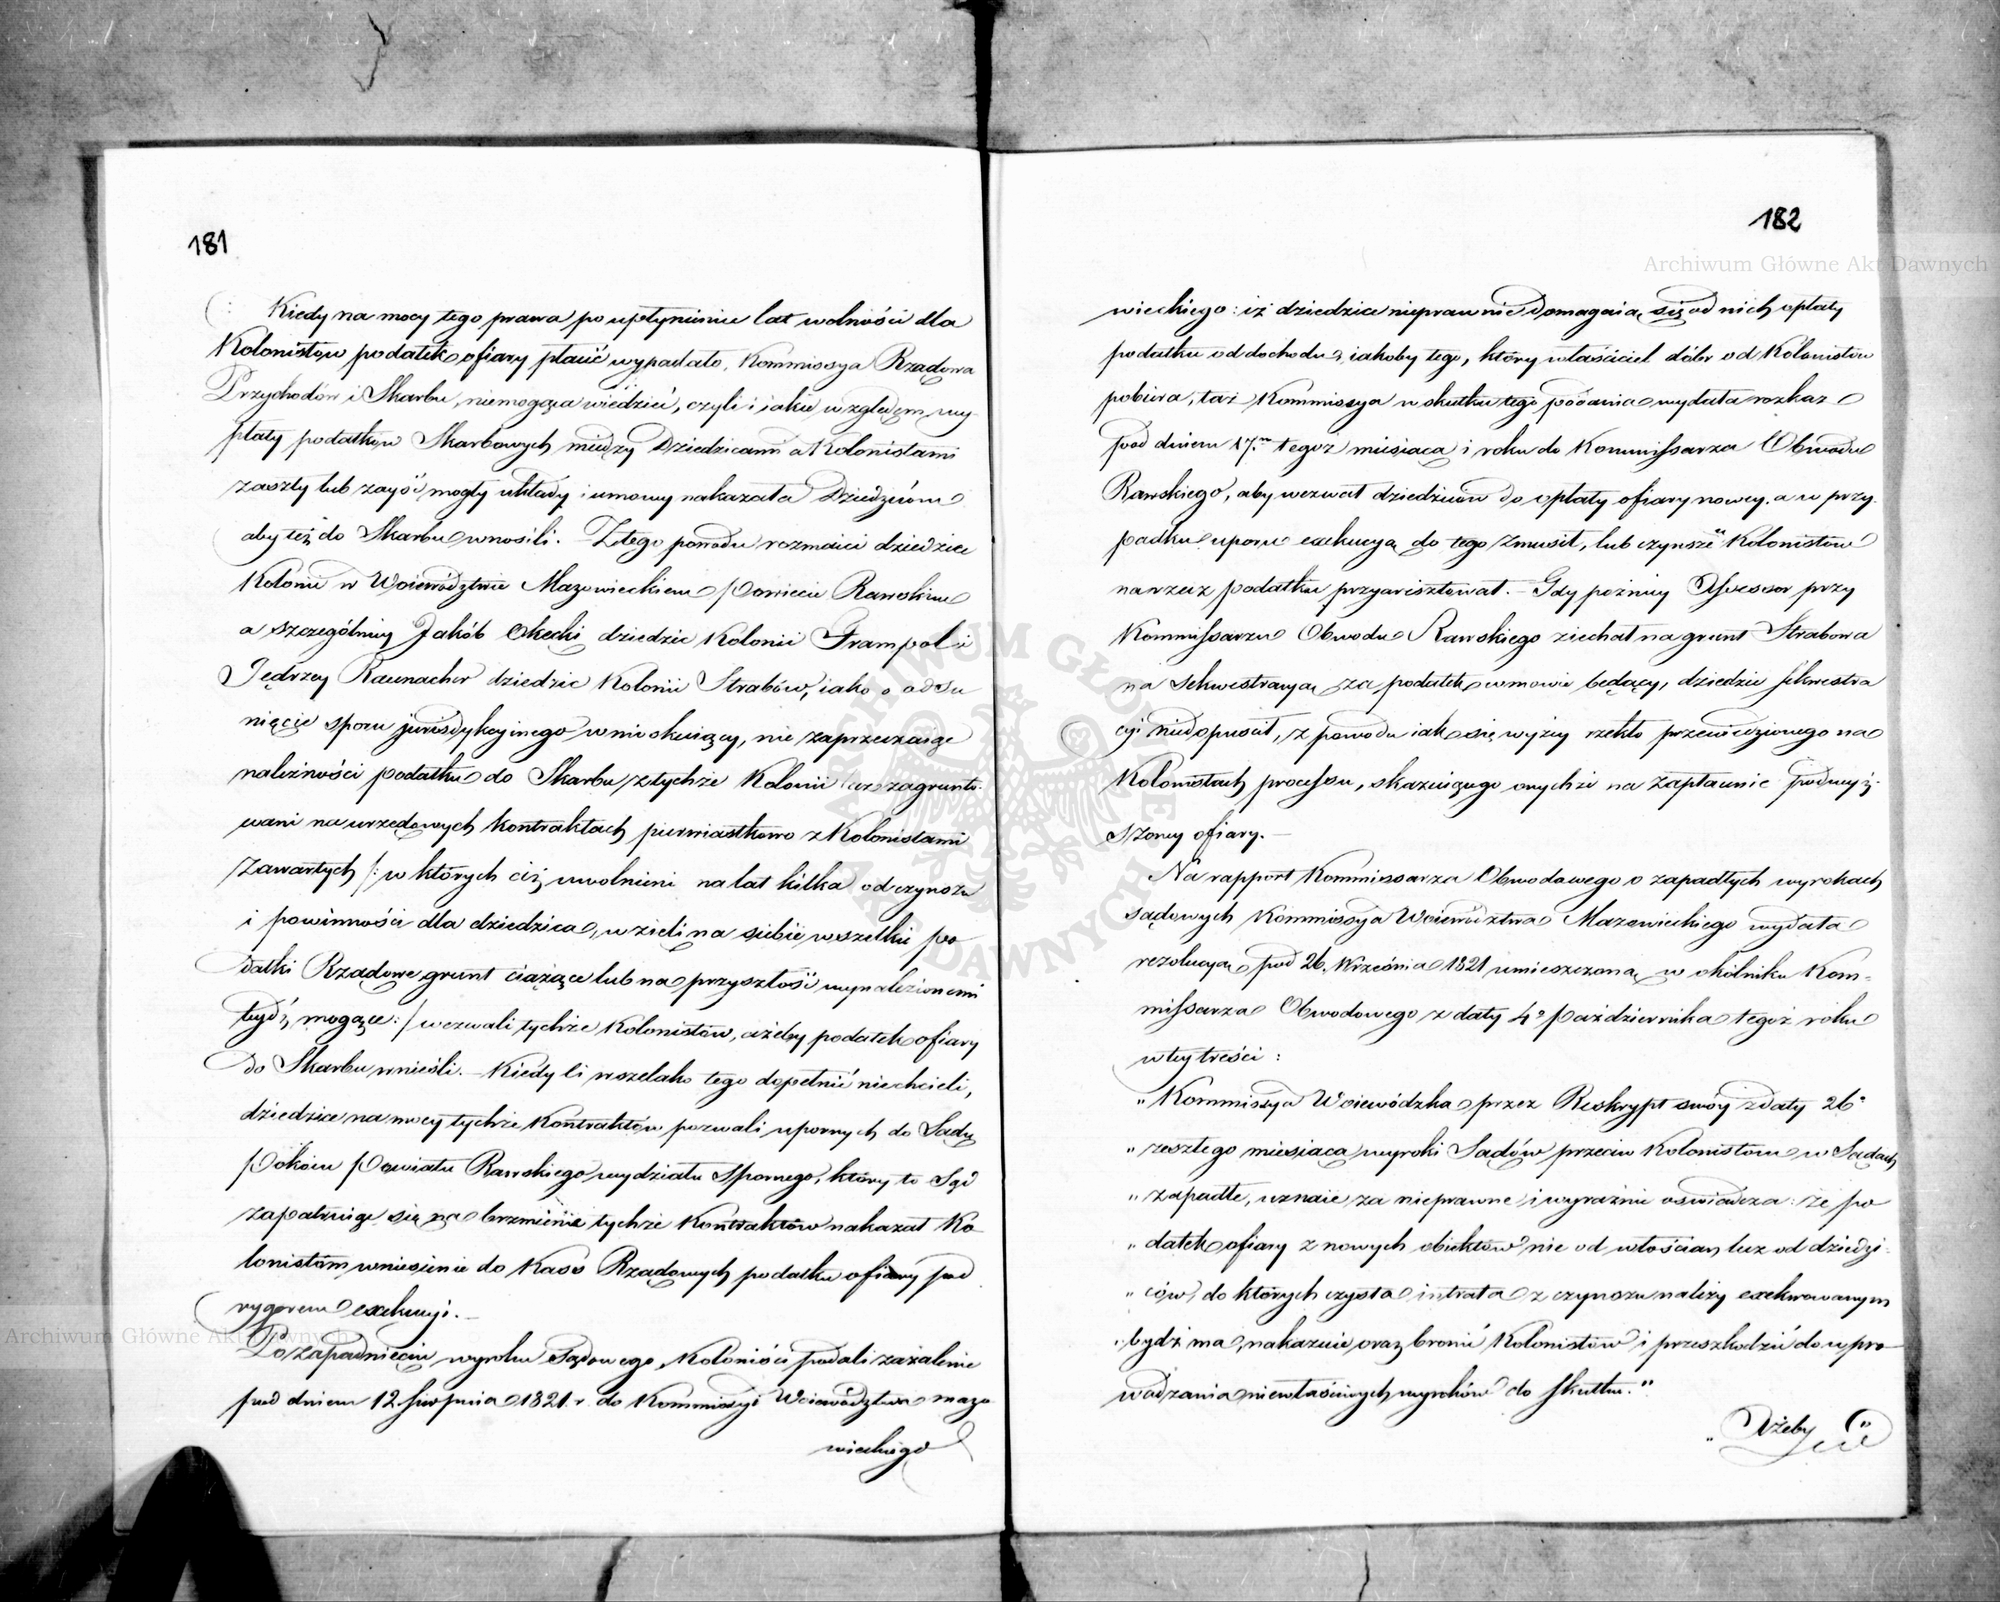 181
Kiedy na mocy tego prawa po upłynieniu lat wolności dla
Kolonistów podatek ofiary płacić wypadało, Kommissya Rządowa
Przychodów i Skarbu, niemogąca wiedzieć, czyli i jakie względem wy-
płaty podatków Skarbowych między Dziedzicami a Kolonistami
zaszły lub zayść mogły układy i umowy nakazała Dziedzicom
aby też do Skarbu wnosili. Z tego powodu rozmaici dziedzice
Kolonii w Woiewództwie Mazowieckiem Powiecie Rawskim
a szczególniey Jakób Okęcki dziedzic Kolonii Frampol i
Jędrzey Raunacher dziedzic Kolonii Strabów, iako o odsu
nięcie sporu jurisdykcyinego wnioskuiący, nie zaprzeczaiąc
należności podatku do Skarbu z tychże Kolonii lecz zagrunto-
wani na urzędowych kontraktach pierwiastkowo z Kolonistami
zawartych /: w których ciż uwolnieni na lat kilka od czynszu
i powinności dla dziedzica, wzieli na siebie wszelkie po
datki Rządowe grunt ciążące lub na przyszłość wynalezionemi
bydź mogące :/ wezwali tychże Kolonistów, ażeby podatek ofiary
do Skarbu wnieśli. – Kiedy ci wszelako tego dopełnić niechcieli,
dziedzice na mocy tychże Kontraktów pozwali upornych do Sądu
Pokoiu Powiatu Rawskiego wydziału Spornego, który to Sąd
zapatruiąc się na brzmienie tychże Kontraktów nakazał Ko
lonistom wniesienie do Kass Rządowych podatku ofiary pod
rygorem exekucyi. –
Po zapadnięciu wyroku Sądowego, Koloniści podali zażalenie
pod dniem 12 Sierpnia 1821 r. do Kommissyi Woiewództwa mazo
wieckiego
182
wieckiego: iż dziedzice nieprawnie domagaią się od nich opłaty
podatku od dochodu, iakoby tego, który właściciel dóbr od Kolonistów
pobiera, taż Kommissya w skutku tego podania wydała rozkaz
pod dniem 17.m tegoż miesiąca i roku do Kommissarza Obwodu
Rawskiego, aby wezwał dziedziców do opłaty ofiary nowey, a w przy-
padku uporu exekucyą do tego zmusił, lub czynsze Kolonistów
na rzecz podatku przyaresztował. – Gdy poźniey Assessor przy
Kommissarzu Obwodu Rawskiego ziechał na grunt Strabowa
na Sekwestracyą za podatek w mowie będący, dziedzic sekwestra
cyi niedopuścił, z powodu iak się wyżey rzekło przewiedzionego na
Kolonistach processu, skazuiącego onychże na zapłacenie podwyż-
szoney ofiary. –
Na rapport Kommissarza Obwodowego o zapadłych wyrokach
sądowych Kommissya Woiewództwa Mazowieckiego wydała
rezolucyą pod 26. Września 1821 umieszczoną w okólniku Kom-
missarza Obwodowego z daty 4o Października tegoż roku
w tey treści :
„ Kommissya Woiewódzka przez Reskrypt swóy z daty 26o
„ zeszłego miesiąca wyroki Sądów przeciw Kolonistom w Sądach
„ zapadłe, uznaie za nieprawne, i wyraźnie oświadcza: że po
„ datek ofiary z nowych obiektów nie od włościan lecz od dziedzi-
„ ców, do których czysta intrata z czynszu należy exekwowanym
„ bydź ma, nakazuie oraz bronić Kolonistów i przeszkodzić do wpro-
wadzania niewłaściwych wyroków do skutku.“
„ Ażeby
Archiwum Główne Akt Dawnych
Archiwum Główne Akt Dawnych
ARCHIWUM GŁÓWNE AKT DAWNYCH